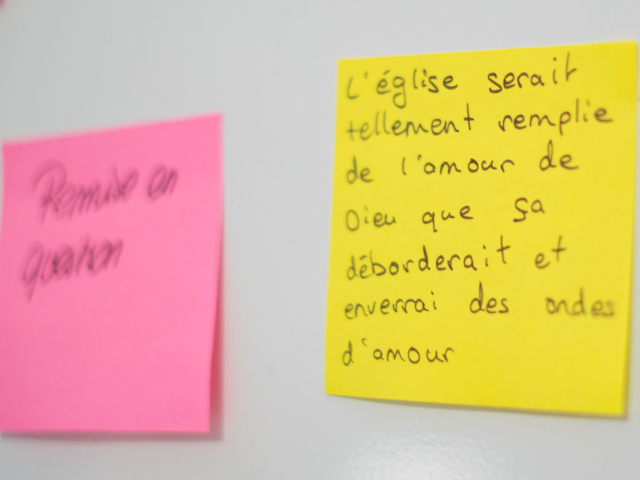 Remise en
question
L'église serait
tellement remplie
de l'amour de
Dieu que ça
déborderait et
enverrai des ondes
d'amour